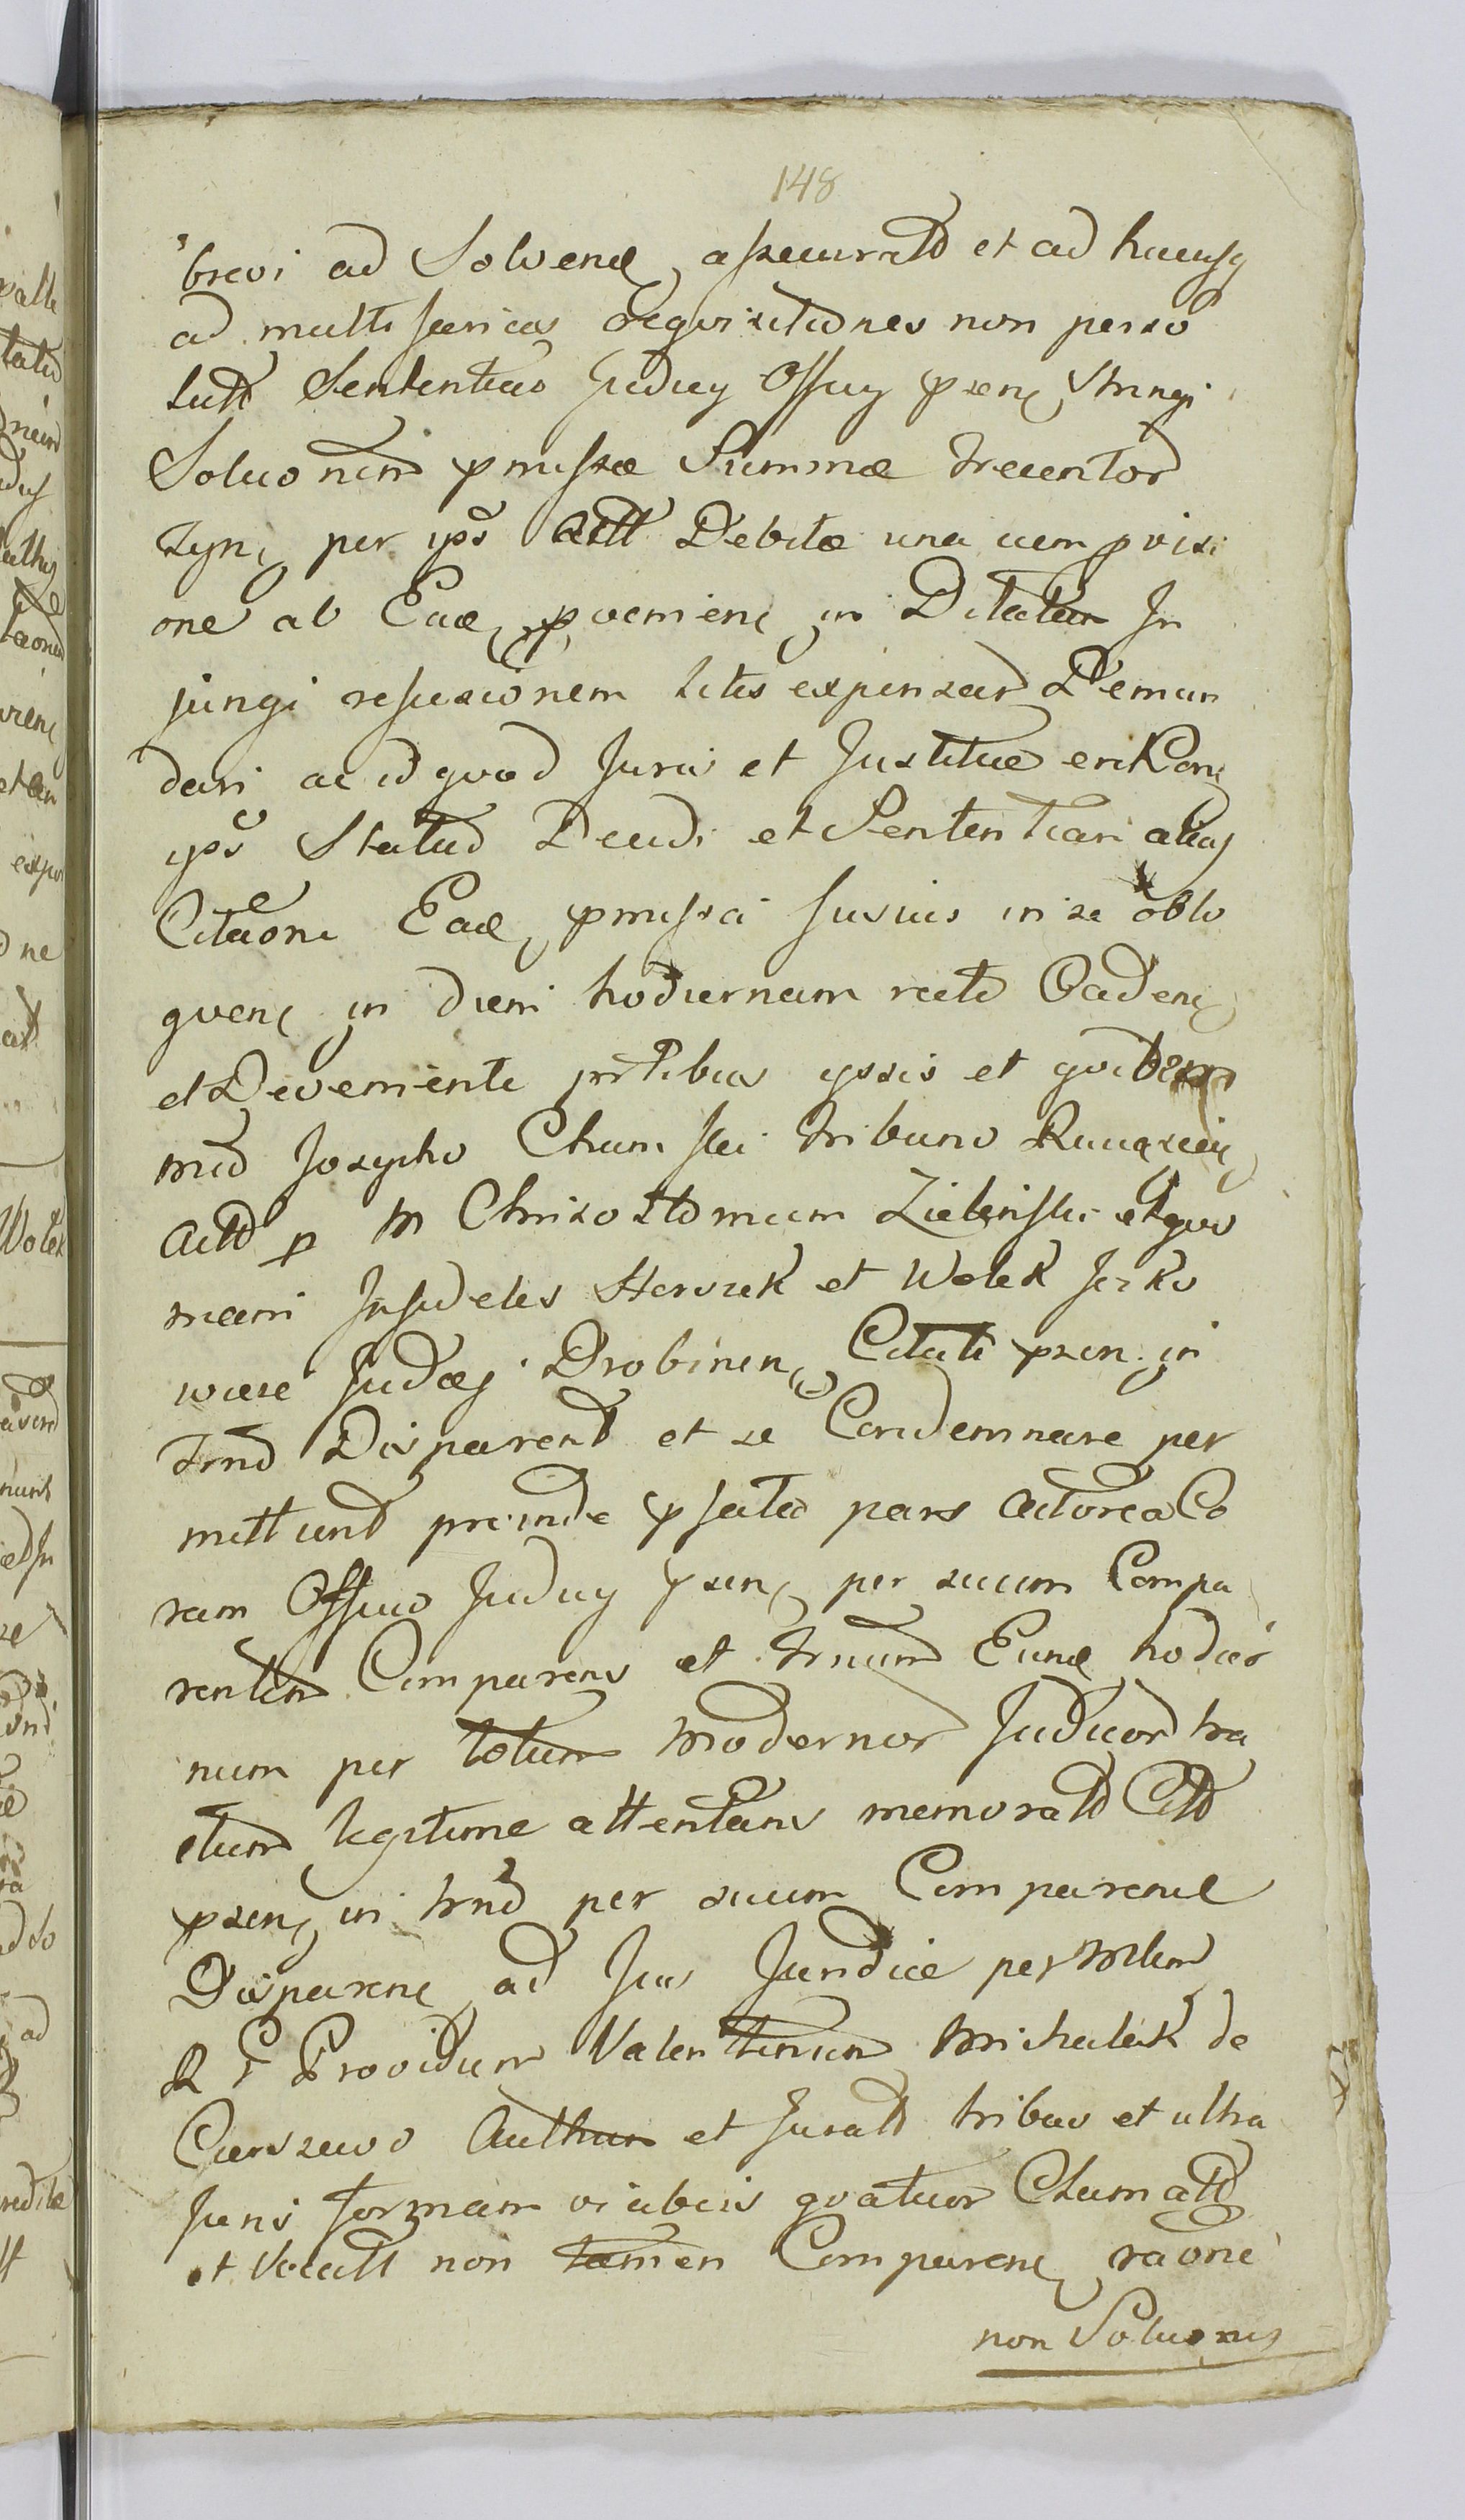 148
brevi ad Solvend assecurato et ad hucusq
ad multifarias requisitiones non perso
lutt Sententias Juducy Officy psenc stringi
Soluonem pmissæ Summæ trecentor
zyn per ips Actt Debitæ una cum provisi
one ab Eade pvenienc in Ditatem In
jungi refusionem litis expensar Deman
dari ac id quod Juris et Justitiæ erit Conc
ips Statuo Decidi et Sententiari alias
Citaone Eade pmissa fusius in se oblo
quenc in diem hodiernam recto Cadenc
et Deveniente prtibus ipsis et quidem
mco Josepho Chamski tribuno Racazcy
Acto p M Chrisostomum Zielinski et quo
mam Infideles Herszek et Wolek Jezko
wicze Judæj Drobinenc Citati psen in
Trno Disparent et se Condemnare per
mittunt proinde pfata pars Actorea Co
ram Officio Juducy psenc per suum Compa
rentem Comparens et Trnum Eund hodier
num per totum modernor Judicior tra
ctum legitime attentans memoratt Citt
psenc in trno per suum Comparend
Disparenc ad Jus Juridice per Mlem
R P Providum Valentinum Michalak de
Carszewo Authum et Juratt tribus et ultra
Juris formam vicibus quatuor Clamatt
et Vocatt non tamen Comparenc raone
non Soluonis